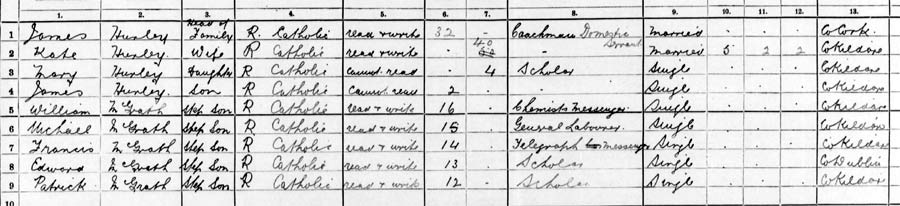 1. 2. 3. 4. 5. 6. 7. 8. 9. 10. 11. 12. 13.
1 James Hurley Head of Family R. Catholic read & write 32 - Coachman Domestic Servant Married - - - Co Cork
2 Kate Hurley Wife R Catholic read & write - 40 - Married 5 2 2 Co Kildare
3 Mary Hurley Daughter R Catholic cannot read - 4 Scholar Single - - - Co Kildare
4 James Hurley Son R Catholic cannot read 2 - Single - - - Co Kildare
5 William McGrath Step Son R Catholic read & write 16 - Chemists Messenger Single - - - Co Kildare
6 Michael McGrath Step Son R Catholic read & write 15 General Labourer Single - - - Co Kildare
7 Francis McGrath Step Son R Catholic read & write 14 Telegraph Messenger Single - - - Co Kildare
8 Edward McGrath Step Son R Catholic read & write 13 Scholar Single - - - Co Dublin
9 Patrick McGrath Step Son R Catholic read & write 12 Scholar Single - - - Co Kildare
10